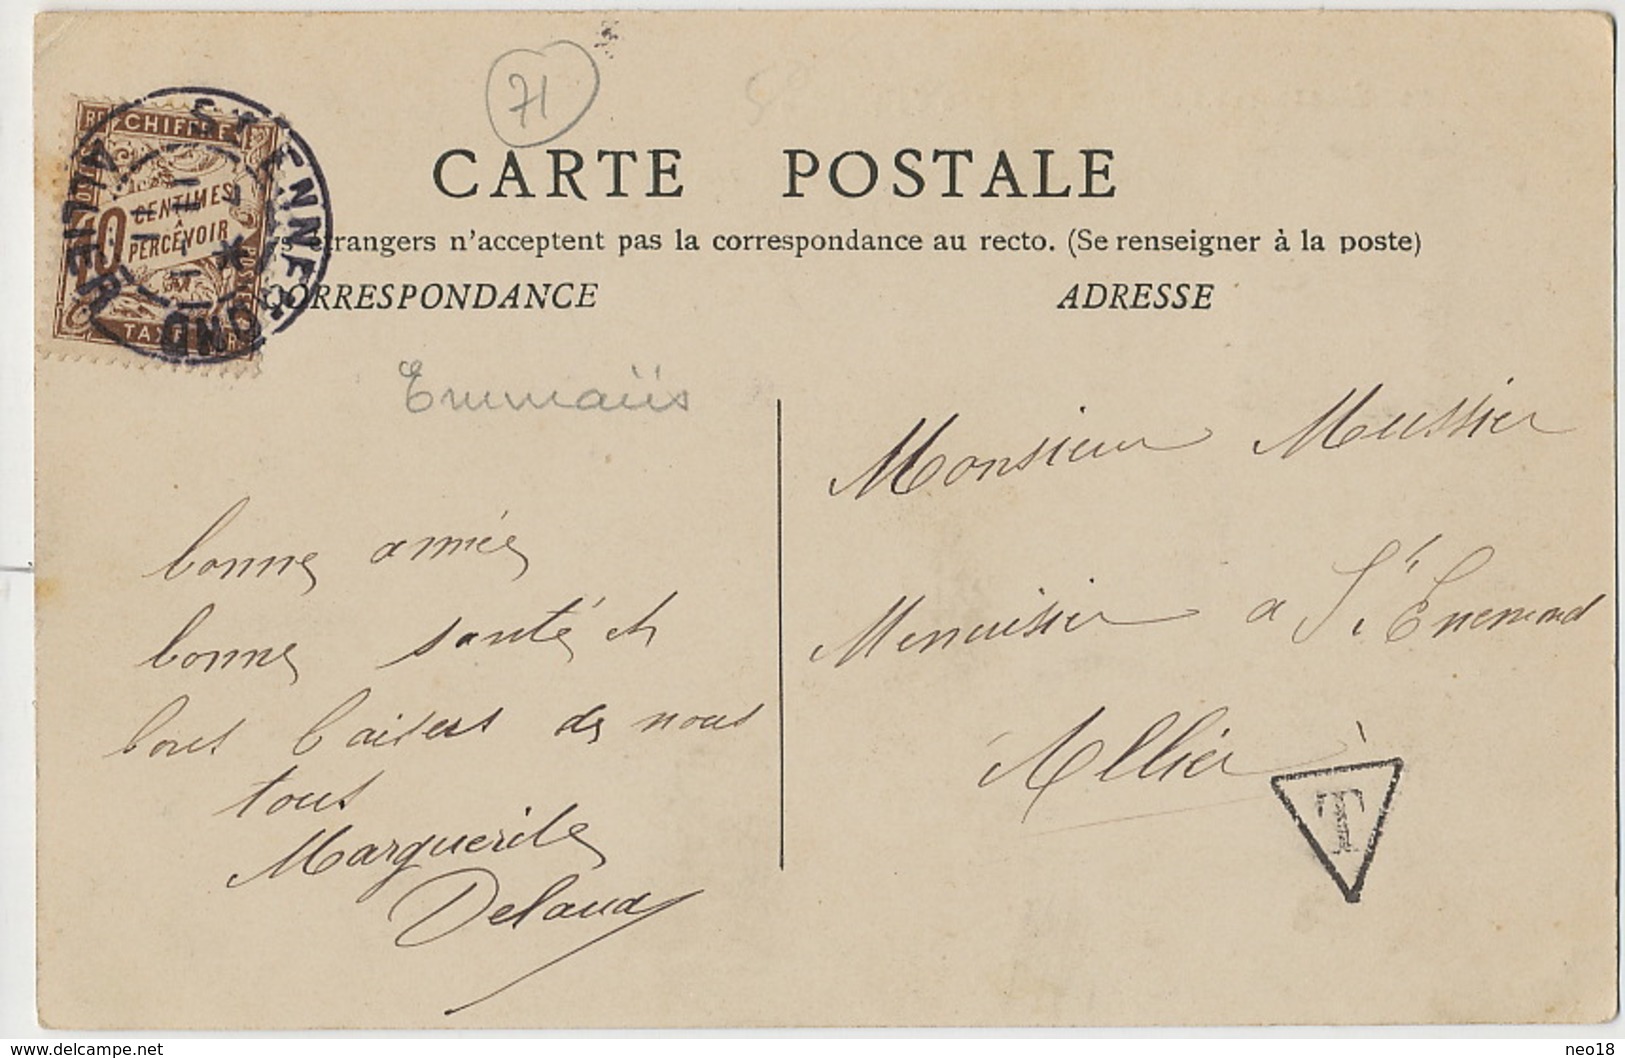 71
CARTE POSTALE
étrangers n'acceptent pas la correspondance au recto. (Se renseigner à la poste)
CORRESPONDANCE
ADRESSE
CHIFFRE
10
CENTIMES
À
PERCEVOIR
TAXE
ST ENNEMOND
ALLIER
Emmaüs
Monsieur Mussier
Menuisier a St Ennemond
Allier
T
bonne année
bonne santé et
bons baisers de nous
tous
Marguerite
Delaux
www.delcampe.net
neo18